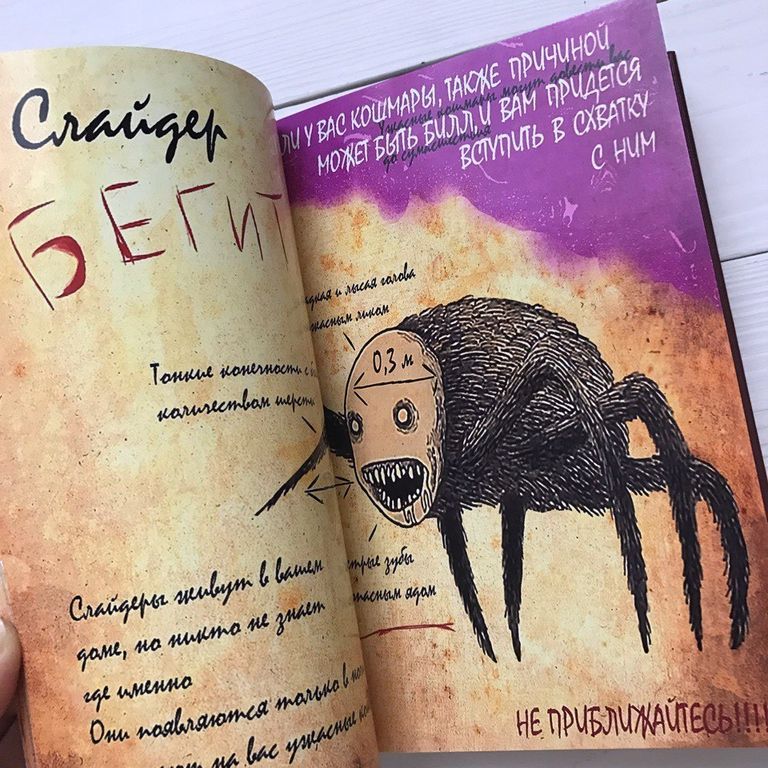 Слайдер
БЕГИТ
Тонкие конечности с
количеством шерсти
Слайдеры живут в вашем
доме, но никто не знает
где именно
Они появляются только в
на вас ужасные
ЛИ У ВАС КОШМАРЫ, ТАКЖЕ ПРИЧИНОЙ
МОЖЕТ БЫТЬ БИЛЛ И ВАМ ПРИДЕТСЯ
ВСТУПИТЬ В СХВАТКУ
С НИМ
Ужасные кошмары могут довести вас
до сумасшествия
и лысая голова
ужасным ликом
0,3 м
стрые зубы
опасным ядом
НЕ ПРИБЛИЖАЙТЕСЬ!!!!